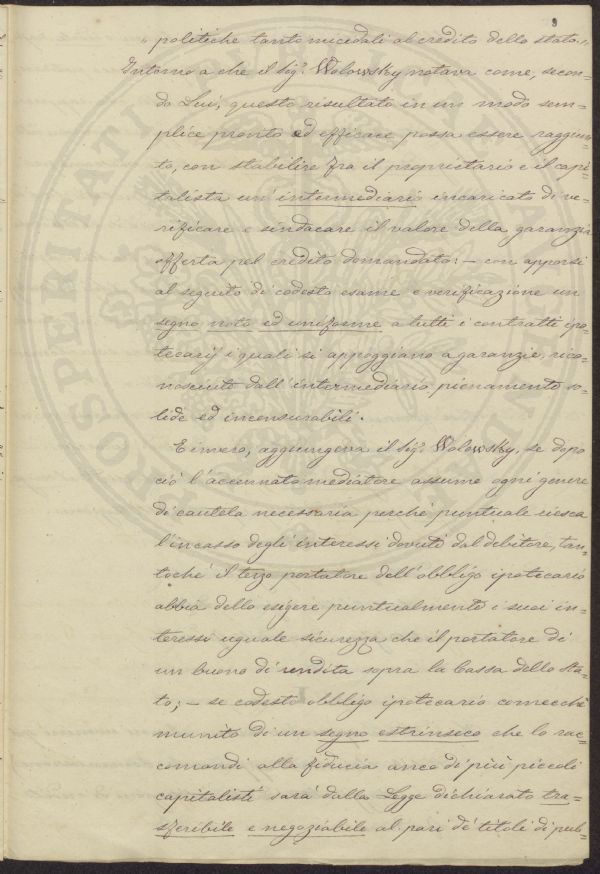 9
„ politiche tanto micidali al credito dello stato „
Intorno a che il Sig.r Wolowsky notava come, secon=
do Lui, questo risultato in un modo sem=
plice pronto ed efficace possa essere raggiun=
to, con stabilire fra il proprietario e il capi=
talista un' intermediario incaricato di ve=
rificare e sindacare il valore della garanzia
offerta pel credito domandato: — con apporsi
al seguito di codesto esame e verificazione un
segno noto ed uniforme a tutti i contratti ipo=
tecarij i quali si appoggiano a garanzie, rico=
nosciute dall' intermediario pienamente so=
lide ed incensurabili.
E invero, aggiungeva il Sig.r Wolowsky, se dopo
ciò l'accennato mediatore assume ogni genere
di cautela necessaria perchè puntuale riesca
l'incasso degli interessi dovuti dal debitore, tan=
tochè il terzo portatore dell'obbligo ipotecario
abbia dello esigere puntualmente i suoi in=
teressi uguale sicurezza che il portatore di
un buono di rendita sopra la Cassa dello Sta=
to; — se codesto obbligo ipotecario comecchè
munito di un segno estrinseco che lo rac=
comandi alla fiducia anco di più piccoli
capitalisti sarà dalla Legge dichiarato tra=
sferibile e negoziabile al pari de' titoli di pub=
PROSPERITATI